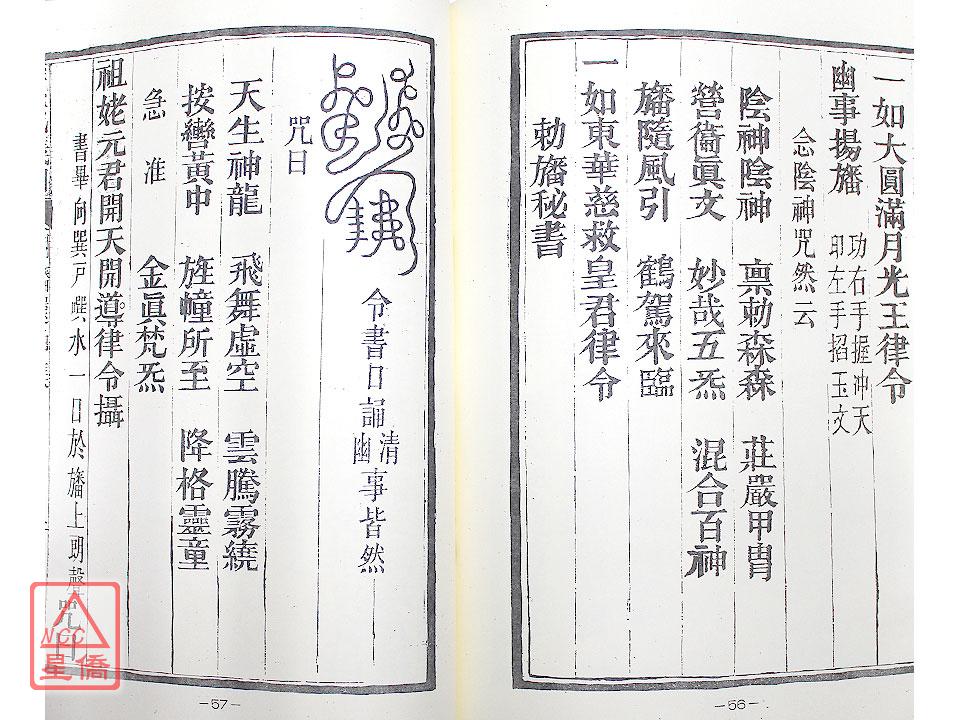 一如大圓滿月光王律令
幽事揚旛
功右手握冲天
印左手搯玉文
念陰神咒然云
陰神陰神 禀勅森森 莊嚴甲冑
營衞眞文 妙哉五炁 混合百神
旛隨風引 鶴駕來臨
一如東華慈救皇君律令
勅旛秘書
—56—
令書口誦
清
幽
事皆然
咒曰
天生神龍 飛舞虛空 雲騰霧繞
按轡黃中 旌幢所至 降格靈童
急准 金眞梵炁
祖姥元君開天開導律令攝
書畢向巽戶噀水一口於旛上明聲咒曰
—57—
NCC
星僑